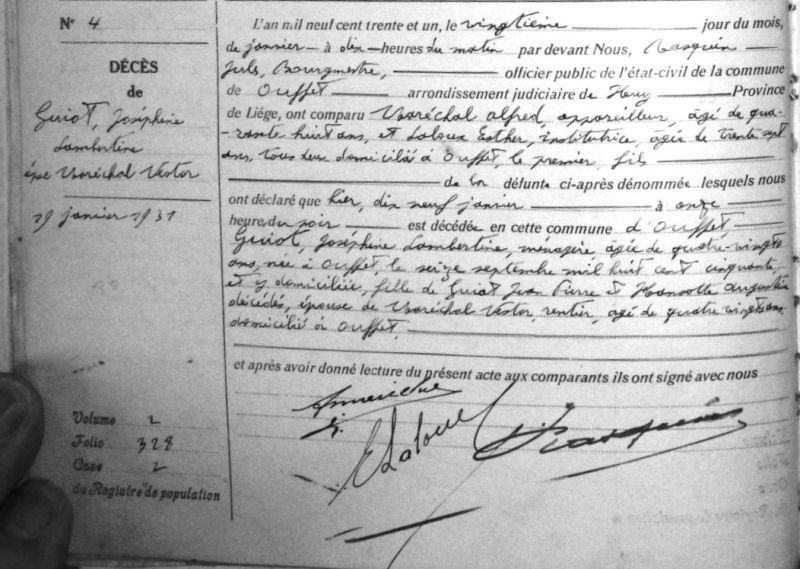 N° 4
DÉCÈS
de
Guiot, Joséphine
Lambertine
épse Maréchal Nestor
19 janvier 1931
Volume 2
Folio 328
Case 2
du Registre de population
L'an mil neuf cent trente et un, le vingtième jour du mois,
de janvier - à dix - heures du matin par devant Nous, Rasquin
Jules, Bourgmestre, officier public de l'état-civil de la commune
de Ouffet arrondissement judiciaire de Huy Province
de Liège, ont comparu Maréchal Alfred, appareilleur, âgé de qua-
-rante huit ans, et Laloux Esther, institutrice, âgée de trente sept
ans, tous deux domiciliés à Ouffet, le premier, fils
de la défunte ci-après dénommée lesquels nous
ont déclaré que hier, dix neuf janvier à onze
heure, du soir est décédée en cette commune d'Ouffet
Guiot, Joséphine Lambertine, ménagère, âgée de quatre-vingts
ans, née à Ouffet, le seize septembre mil huit cent cinquante,
et y domiciliée, fille de Guiot Jean Pierre et Hansotte Augustine
décédés, épouse de Maréchal Nestor, rentier, âgé de quatre vingts ans,
domicilié à Ouffet,
et après avoir donné lecture du présent acte aux comparants ils ont signé avec nous
E Laloux
J Rasquin